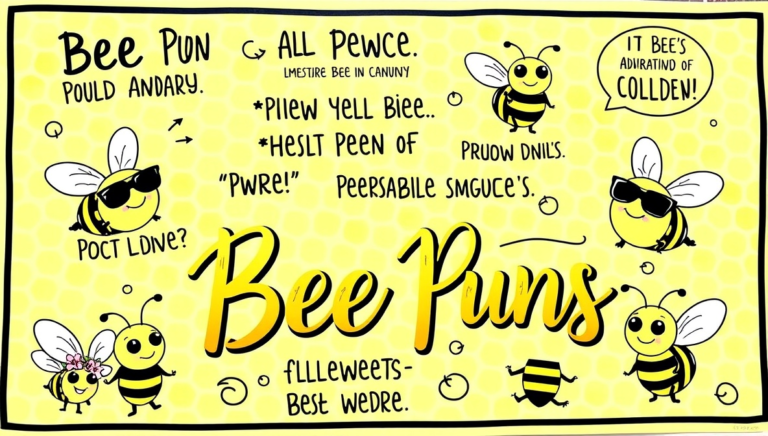 Bee PUN
POULD ANDARY.
ALL PEWCE.
LMESTIRE BEE IN CANUNY
*PIIEW YELL BIEE..
*HESLT PEEN OF
"PWRE!"
PEERSABILE SMGUCE'S.
PRUOW DNIL'S.
IT BEE'S
ADURATIND OF
COLLDEN!
POCT LDNVE?
Bee Puns
fLLLEWEETS-
BEST WEDRE.